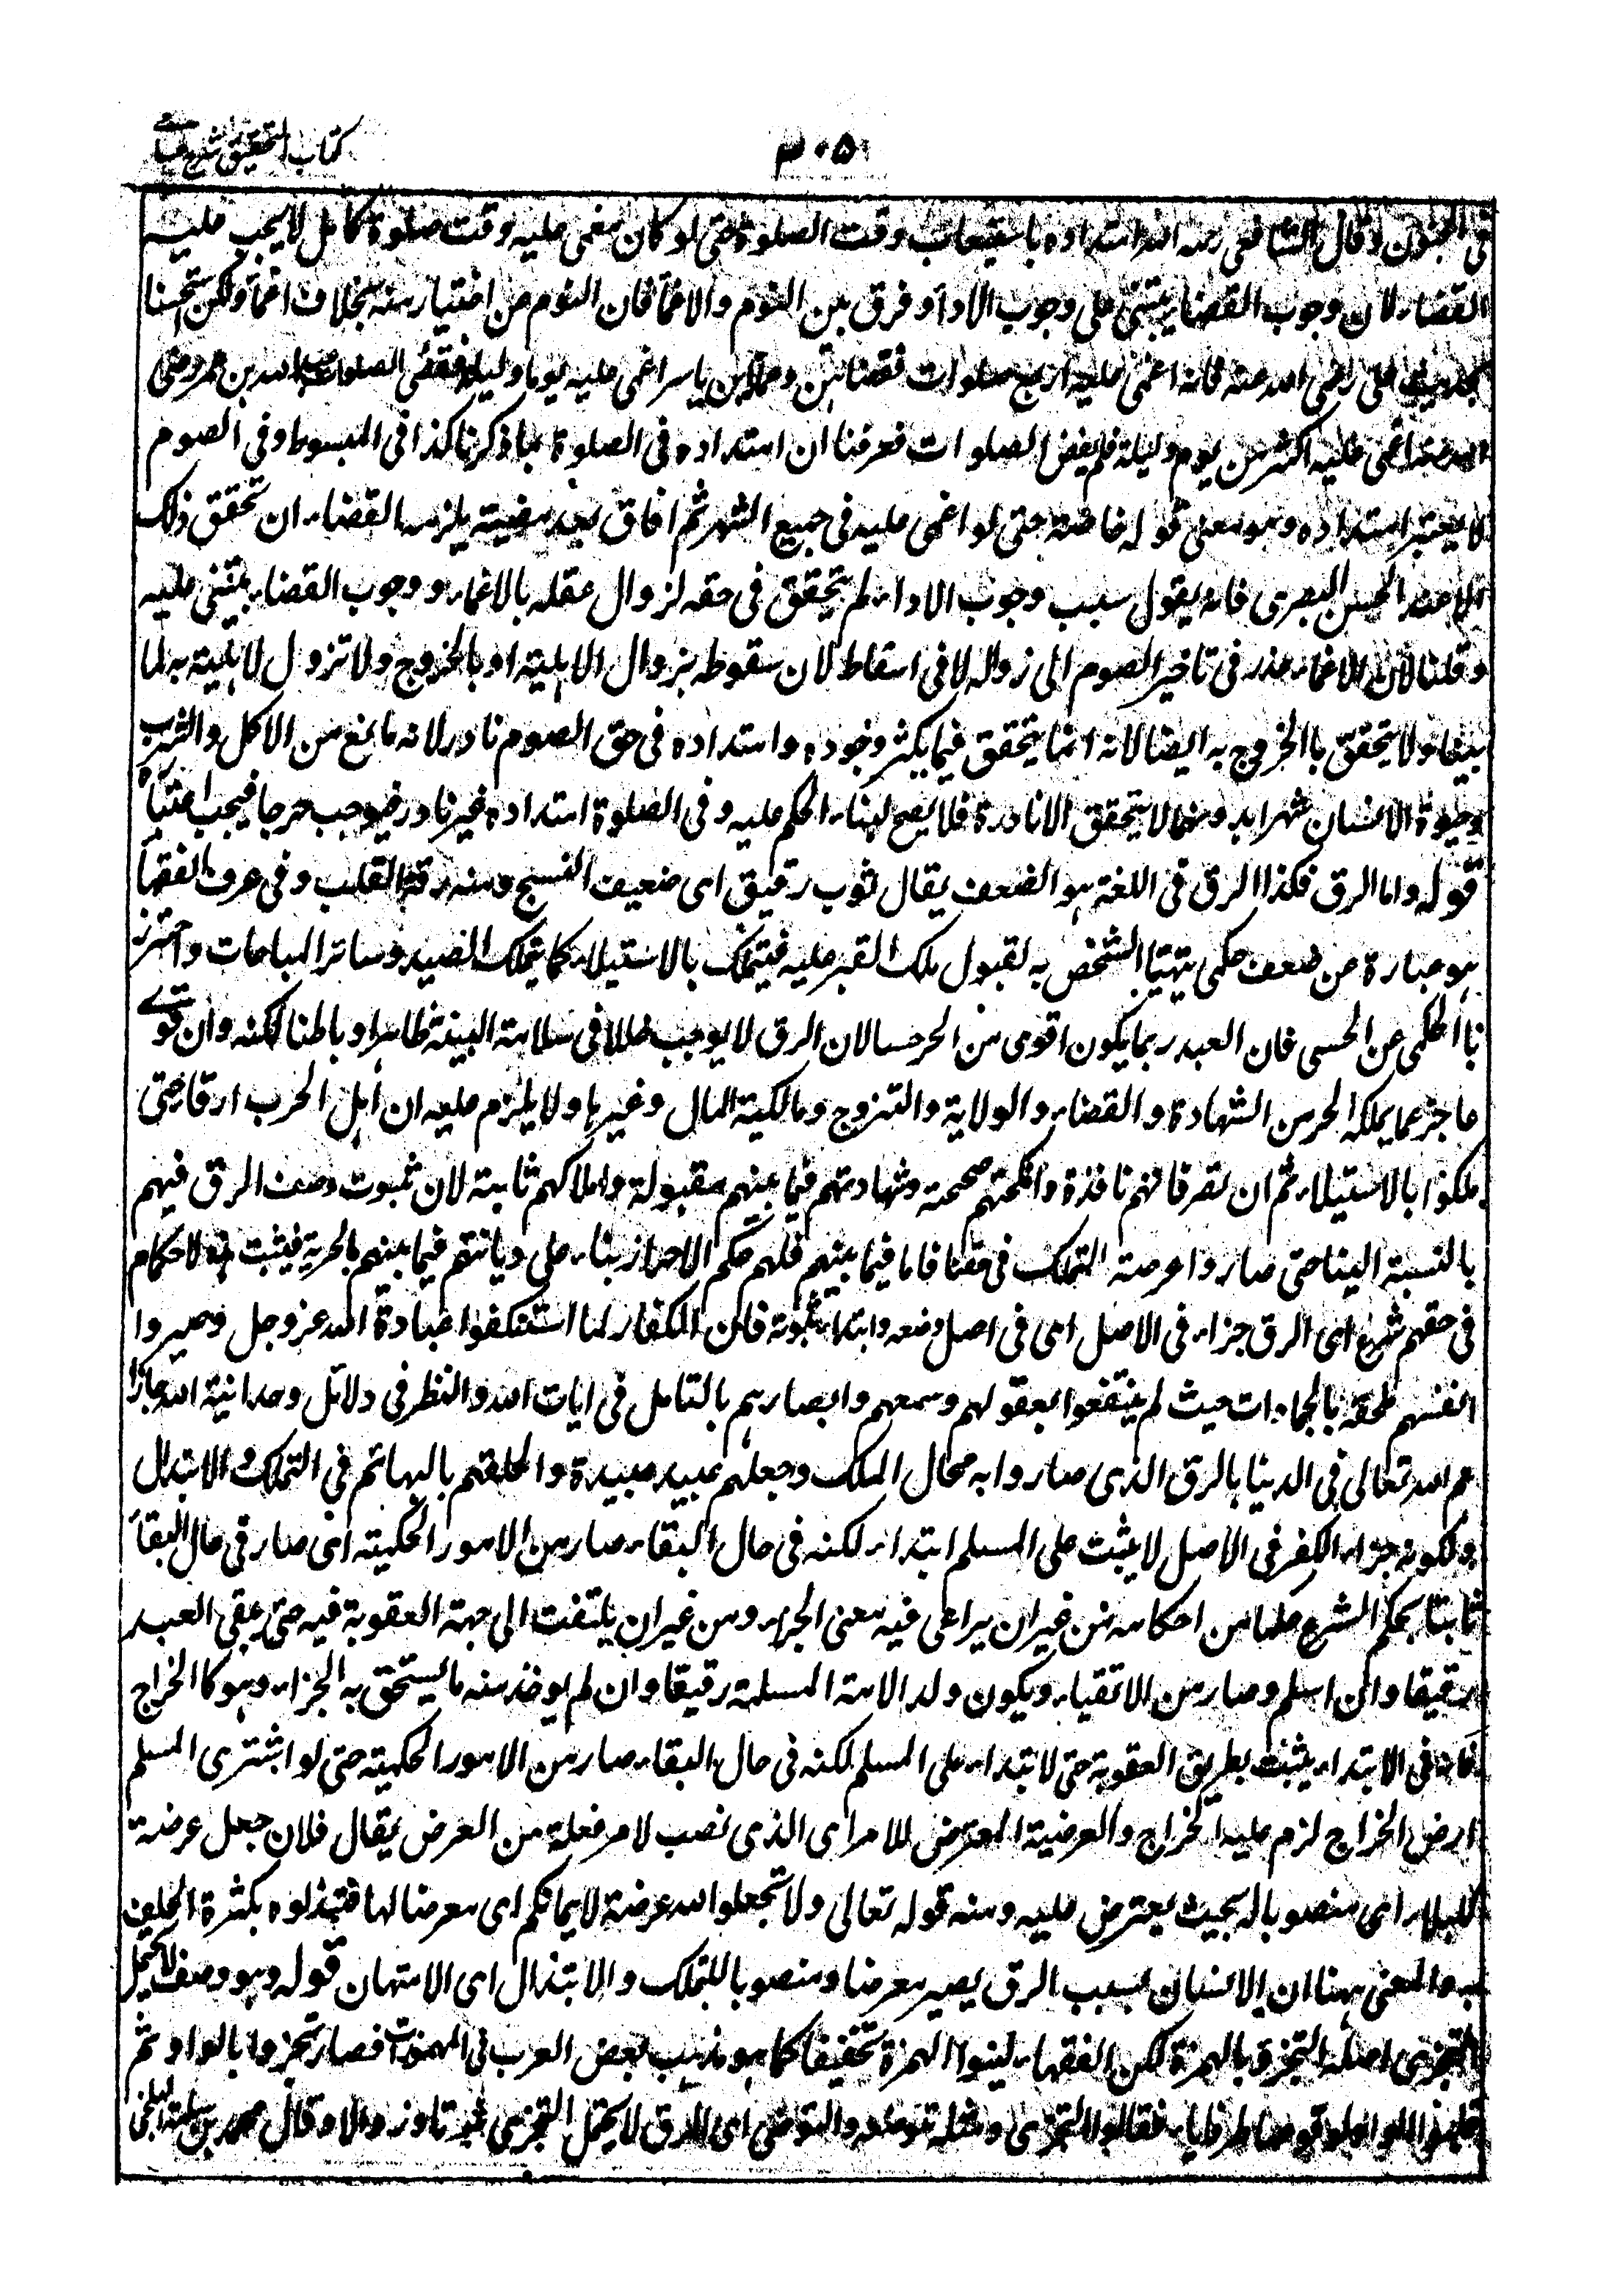 كتاب التحقيق شرح حسامي
٣٠٥
في الجنون وقال الشافعي رحمه الله امتداده باستيعاب وقت الصلوة حتى لو كان مغمى عليه وقت صلوة كامل لا يجب عليه
القضاء لان وجوب القضاء يبتنى على وجوب الاداء وفرق بين النوم والاغماء فان النوم عن اختيار منه بخلاف اغماء ولكن استحسنا
بحديث على رضى الله عنه فانه اغمى عليه اربع صلوات فقضاهن وعمار بن ياسر اغمى عليه يوما وليلة فقضى الصلوات وعبد الله بن عمر رضى
الله عنه اغمى عليه اكثر من يوم وليلة فلم يقض الصلوات فعرفنا ان امتداده فى الصلوة بما ذكرنا كذا فى المبسوط وفى الصوم
لا يعتبر امتداده وهو معنى قوله خاصة حتى لو اغمى عليه فى جميع الشهر ثم افاق بعد مضيه يلزمه القضاء ان تحقق ذلك
الا عند الحسن البصرى فانه يقول سبب وجوب الاداء لم يتحقق فى حقه لزوال عقله بالاغماء ووجوب القضاء يبتنى عليه
وقلنا لان الاغماء عذر فى تاخير الصوم الى زواله لا فى اسقاط لان سقوطه بزوال الاهلية او بالحرج ولا تزول لاهلية به لما
بينا ولا يتحقق بالحرج به ايضا لانه انما يتحقق فيما يكثر وجوده وامتداده فى حق الصوم نادر لانه مانع من الاكل والشرب
وحيوة الانسان شهرا بدونهما لا يتحقق الا نادرة فلا يصح لبناء الحكم عليه وفى الصلوة امتداده غير نادر فيوجب حرجا فيجب اعتباره
قوله واما الرق فكذا الرق فى اللغة هو الضعف يقال ثوب رقيق اى ضعيف النسج ومنه رقة القلب وفى عرف الفقهاء
هو عبارة عن ضعف حكمى يتهيأ الشخص به لقبول ملك الغير عليه فيتملك بالاستيلاء كما يتملك الصيد وسائر المباحات واحترز
نا الحكمى عن الحسى فان العبد ربما يكون اقوى من الحر حسا لان الرق لا يوجب خللا فى سلامة البنية ظاهرا وباطنا لكنه وان قوى
عاجز عما يملكه الحر من الشهادة والقضاء والولاية والتزوج ومالكية المال وغيرها ولا يلزم عليه ان اهل الحرب ارقاء حتى
ملكوا بالاستيلاء ثم ان تصرفاتهم نافذة وانكحتهم صحيحة وشهادتهم فيما بينهم مقبولة واملاكهم ثابتة لان ثبوت وصف الرق فيهم
بالنسبة الينا حتى صاروا عرضة التملك فى حقنا فاما فيما بينهم فلهم حكم الاحرار بناء على ديانتهم فيما بينهم بالحرية فيثبت هذه لاحكام
فى حقهم شرع اى الرق جزاء فى الاصل اى فى اصل وضعه وابتداء ثبوته فان الكفار لما استنكفوا عبادة الله عز وجل وصيروا
انفسهم ملحقة بالجمادات حيث لم ينتفعوا بعقولهم وسمعهم وابصارهم بالتامل فى ايات الله والنظر فى دلائل وحدانية الله جازا
هم الله تعالى فى الدنيا بالرق الذى صاروا به محال الملك وجعلهم عبيد عبيدة والحقهم بالبهائم فى التملك والابتذال
ولكونه جزاء الكفر فى الاصل لا يثبت على المسلم ابتداء لكنه فى حال البقاء صار من الامور الحكمية اى صار فى حال البقاء
ثابتا بحكم الشرع حكما من احكامه من غير ان يراعى فيه معنى الجزاء ومن غير ان يلتفت الى جهة العقوبة فيه حتى يبقى العبد
رقيقا وان اسلم وصار من الاتقياء ويكون ولد الامة المسلمة رقيقا وان لم يوخذ منه ما يستحق به الجزاء وهو كالخراج
فانه فى الابتداء يثبت بطريق العقوبة حتى لا تبتداء على المسلم لكنه فى حال البقاء صار من الامور الحكمية حتى لو اشترى المسلم
ارض الخراج لزم عليه الخراج والعرضية المعترض للامر اى الذى نصب لامر فعلة من العرض يقال فلان جعل عرضة
للبلاء اى منصوبا له بحيث يعترض عليه ومنه قوله تعالى ولا تجعلوا الله عرضة لايمانكم اى معرضا لها فتبذلوه بكثرة الحلف
به والمعنى ههنا ان الانسان بسبب الرق يصير معرضا ومنصوبا للتملك والابتذال اى الامتهان قوله وهو وصف لا يحتمل
التجزى اصله التجزؤ بالهمزة لكن الفقهاء لينوا الهمزة تخفيفا كما هو مذهب بعض العرب فى المهموزات فصار تجزوا بالواو ثم
فقالوا التجزى ومثله والتوضى اى الرق لا يحتمل التجزى وقال محمد بن سلمة البلخى